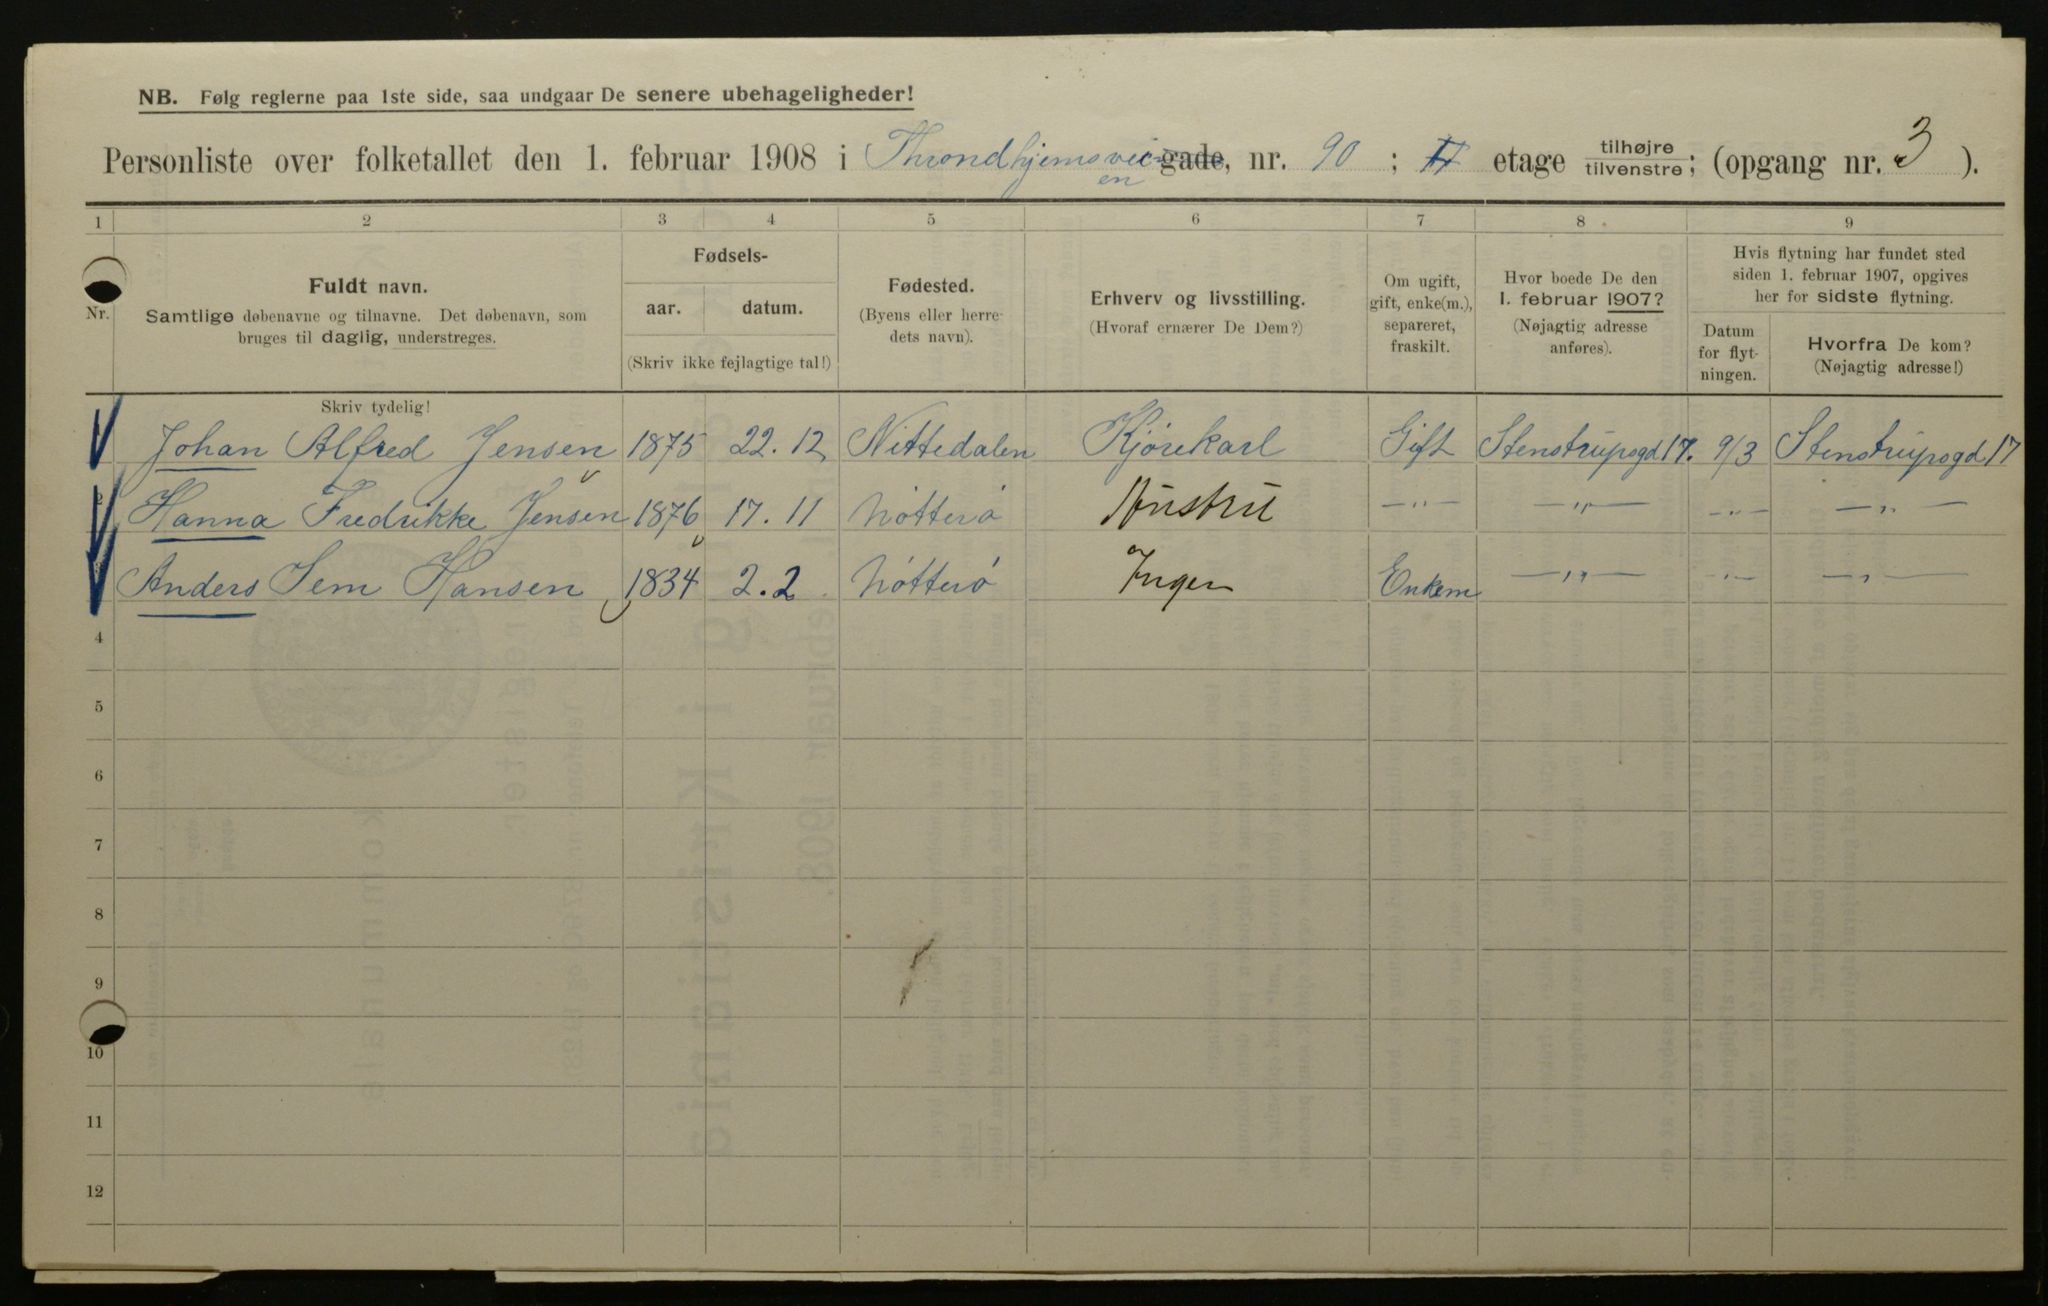 NB. Følg reglerne paa 1ste side, saa undgaar De senere ubehageligheder!
Personliste over folketallet den 1. februar 1908 i Throndhjemsveien gade, nr. 90 ; II etage tilhøjre/tilvenstre; (opgang nr. 3 ).
1 2 3 4 5 6 7 8 9
Nr.
Fuldt navn.
Samtlige døbenavne og tilnavne. Det døbenavn, som
bruges til daglig, understreges.
Skriv tydelig!
Fødsels-
aar. datum.
(Skriv ikke fejlagtige tal!)
Fødested.
(Byens eller herre-
dets navn).
Erhverv og livsstilling.
(Hvoraf ernærer De Dem?)
Om ugift,
gift, enke(m.),
separeret,
fraskilt.
Hvor boede De den
1. februar 1907?
(Nøjagtig adresse
anføres).
Hvis flytning har fundet sted
siden 1. februar 1907, opgives
her for sidste flytning.
Datum
for flyt-
ningen.
Hvorfra De kom?
(Nøjagtig adresse!)
Johan Alfred Jensen 1875 22.12 Nittedalen Kjørekarl Gift Stenstrupsgd 17. 9/3 Stenstrupsgd 17
Hanna Fredrikke Jensen 1876 17.11 Nøtterø Hustru —"— —"— —"— —"—
Anders Sem Hansen 1834 2.2 Nøtterø Ingen Enkem —"— —"— —"—
4
5
6
7
8
9
10
11
12